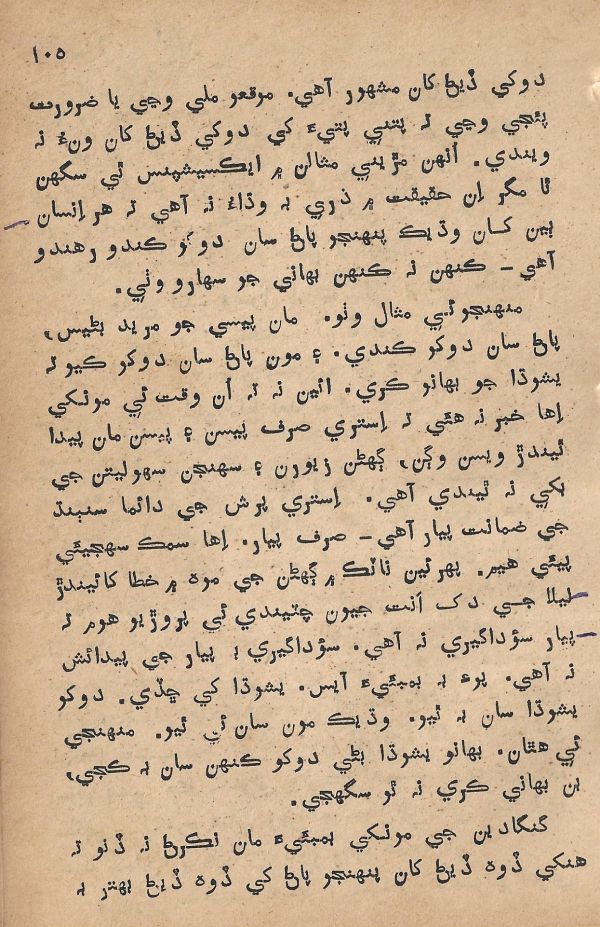 ۱۰۵
دوکي ڏيڻ کان مشهور آهي. موقعو ملي وڃي يا ضرورت
پئجي وڃي ته پتني پتيءَ کي دوکي ڏيڻ کان ونءُ نه
ويندي. اُنهن مڙيني مثالن ۾ ايڪسيپشنس ٿي سگهن
ٿا مگر اِن حقيقت ۾ ذري به وڌاءُ نه آهي ته هر اِنسان
ٻين کان وڌيڪ پنهنجو پاڻ سان دوکو ڪندو رهندو
آهي - ڪنهن نه ڪنهن بهاني جو سهارو وٺي.
منهنجو ئي مثال وٺو. مان پيسي جو مريد بڻيس،
پاڻ سان دوکو ڪندي. ۽ مون پاڻ سان دوکو ڪيو ته
يشوڌا جو بهانو ڪري. ائين نه ته اُن وقت ئي مونکي
اِها خبر نه هئي ته اِستري صرف پيسن ۽ پيسن مان پيدا
ٿيندڙ ويسن وڳن، ڳهڻن زيورن ۽ سهنجن سهوليتن جي
بکي نه ٿيندي آهي. اِستري پرش جي دائما سنٻنڌ
جي ضمانت پيار آهي - صرف پيار. اِها سمڪ سهجيئي
پيئي هيم. پهرئين ناٽڪ ۾ ڳهڻن جي موه ۾ خطا کائيندڙ
ليلا جي دک اَنت جيون چٽيندي ئي پروڙيو هوم ته
پيار سؤداگيري نه آهي. سؤداگيري ۽ پيار جي پيدائش
نه آهي. پوءِ به بمبئيءَ آيس. يشوڌا کي ڇڏي. دوکو
يشوڌا سان به ٿيو. وڌيڪ مون سان ئي ٿيو. منهنجي
ئي هٿان. بهانو يشوڌا بڻي دوکو ڪنهن سان به ڪجي،
بن بهاني ڪري نه ٿو سگهجي.
گنگادين جي مونکي بمبئيءَ مان نڪرڻ نه ڏنو ته
هنکي ڏوهه ڏيڻ کان پنهنجو پاڻ کي ڏوهه ڏيڻ بهتر به